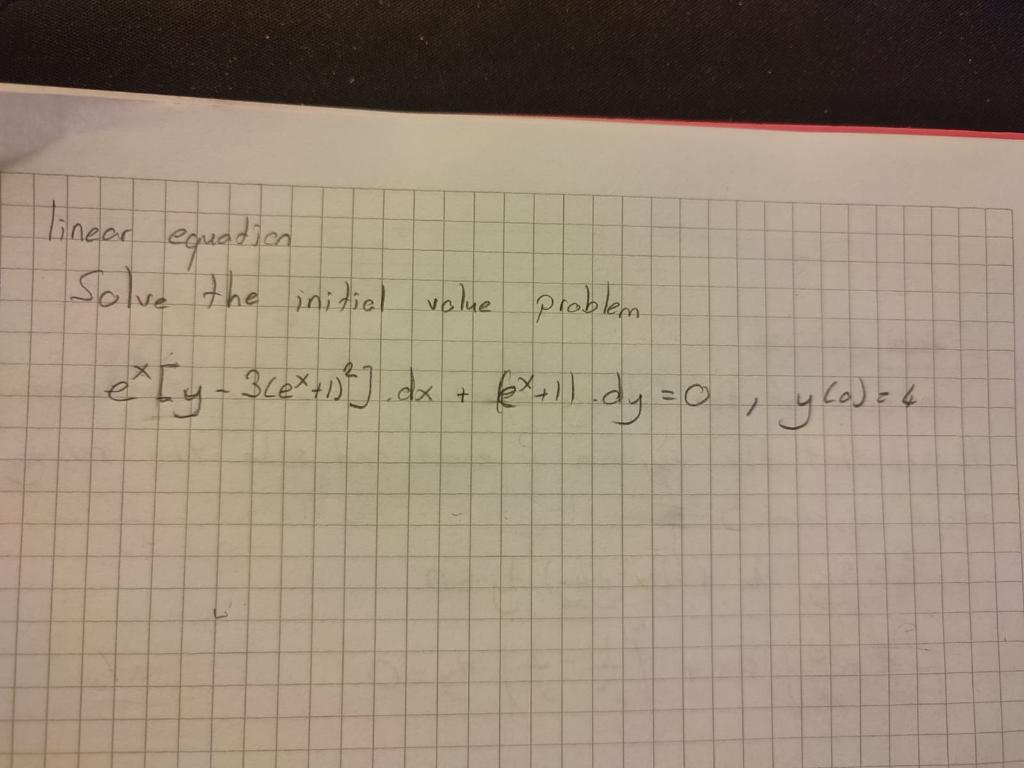 linear equation
Solve the initial value problem
e^x [y - 3(e^x+1)^2] . dx + (e^x+1) . dy = 0 , y(0) = 4